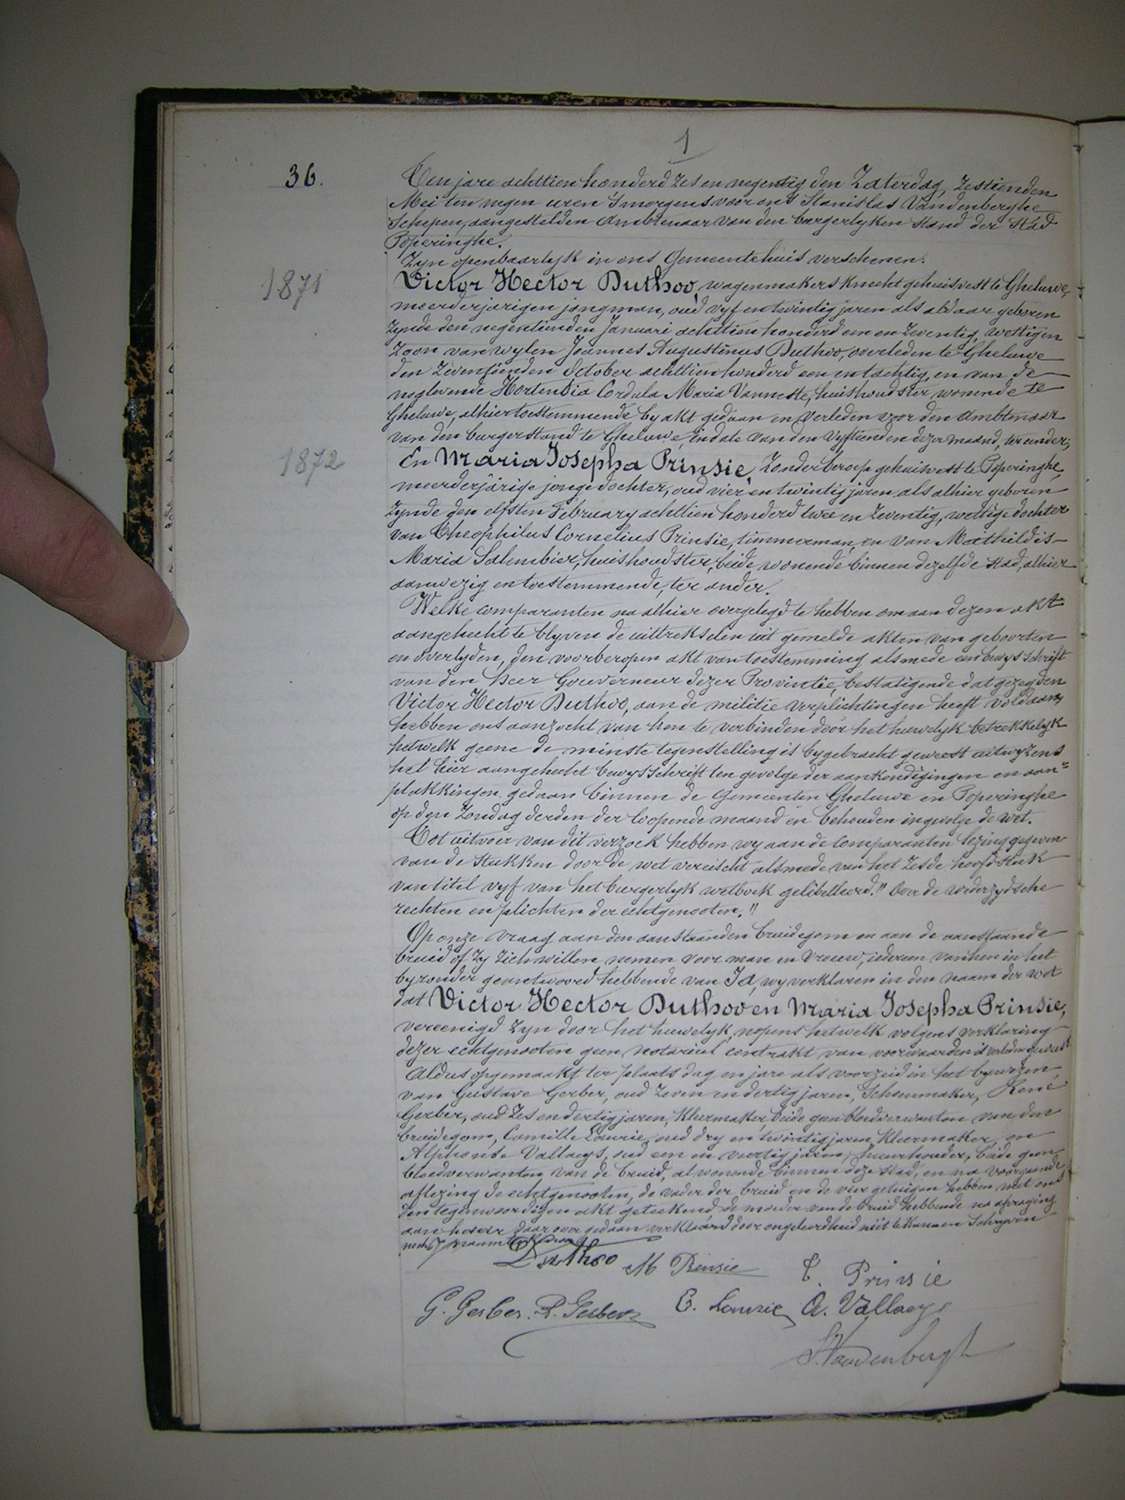 1
36.
Ten jare achttien honderd zes en negentig den Zaterdag, Zestienden
Mei ten negen uren 's morgens voor ons Stanislas Vandenberghe
Schepen, aangestelden Ambtenaar van den burgerlyken stand der stad
Poperinghe.
Zyn openbaarlyk in ons Gemeentehuis verschenen:
1871
Victor Hector Duthoo, wagenmakersknecht gehuisvest te Gheluwe,
meerderjarigen jongman, oud vyf en twintig jaren als aldaar geboren
zynde den negentienden Januari achttien honderd een en zeventig, wettigen
zoon van wylen Joannes Augustinus Duthoo, overleden te Gheluwe
den zeventienden October achttien honderd een en tachtig, en van de
noglevende Hortensia Cordula Maria Vanneste, huishoudster wonende te
Gheluwe, alhier toestemmende by akt gedaan en verleden voor den Ambtenaar
van den burgerstand te Gheluwe, in date van den vyftienden dezer maand, ter eender;
1872
En Maria Josepha Prinsie, zonder beroep gehuisvest te Poperinghe,
meerderjarige jonge dochter, oud vier en twintig jaren als alhier geboren
zynde den elfsten February achttien honderd twee en zeventig, wettige dochter
van Theophilus Cornelius Prinsie, timmerman, en van Mathildis
Maria Salembier, huishoudster, beide wonende binnen dezelfde stad, alhier
aanwezig en toestemmende, ter ander.
Welke comparanten na alhier overgelegd te hebben om aan dezen akt
aangehecht te blyven de uittrekselen uit gemelde akten van geboorten
en overlyden, den voorberoepen akt van toestemming alsmede een bewysschrift
van den Heer Gouverneur dezer Provintie, bestatigende dat gezegden
Victor Hector Duthoo, aan de militie verplichtingen heeft voldaan,
hebben ons aanzocht van hen te verbinden door het huwelyk betrekkelyk
hetwelk geene de minste tegenstelling is bygebracht geweest uitwyzens
het hier aangehecht bewysschrift ten gevolge der aankondigingen en aan=
plakkingen gedaan binnen de Gemeenten Gheluwe en Poperinghe
op den Zondag derden der loopende maand en behouden ingevolge de wet.
Tot uitvoer van dit verzoek hebben wy aan de Comparanten lezing gegeven
van de stukken door de wet vereischt alsmede van het zesde hoofdstuk
van titel vyf van het burgerlyk wetboek gelibelleerd: " Over de wederzydsche
rechten en plichten der echtgenooten."
Op onze vraag aan den aanstaanden bruidegom en aan de aanstaande
bruid of zy zich willen nemen voor man en vrouw, iederen van hen in het
byzonder geantwoord hebbende van Ja, wy verklaren in den naam der wet
dat Victor Hector Duthoo en Maria Josepha Prinsie,
vereenigd zyn door het huwelyk, nopens hetwelk volgens verklaring
dezer echtgenooten geen notarieel contrakt van voorwaarden is verleden geweest
Aldus opgemaakt ter plaats dag en jare als voorzeid in het bywezen
van Gustave Gerber, oud zeven en dertig jaren, Schoenmaker, René
Gerber, oud zes en dertig jaren, Kleermaker, beide geen bloedverwanten van den
bruidegom, Camille Lourie, oud dry en twintig jaren, Kleermaker, en
Alphonse Vallaeys, oud een en veertig jaren, huurhouder, beide geen
bloedverwanten van de bruid, al wonende binnen deze stad, en na voorgaande
aflezing de echtgenooten, de vader der bruid en de vier getuigen hebben met ons
den tegenwoordigen akt geteekend, de moeder van de bruid hebbende na afvraging
aan haar daarover gedaan verklaard door ongeleerdheid niet te kunnen Schryven
Duthoo M Prinsie T. Prinsie
G. Gerber. R. Gerber C. Lourie A. Vallaeys
S. Vandenbergh